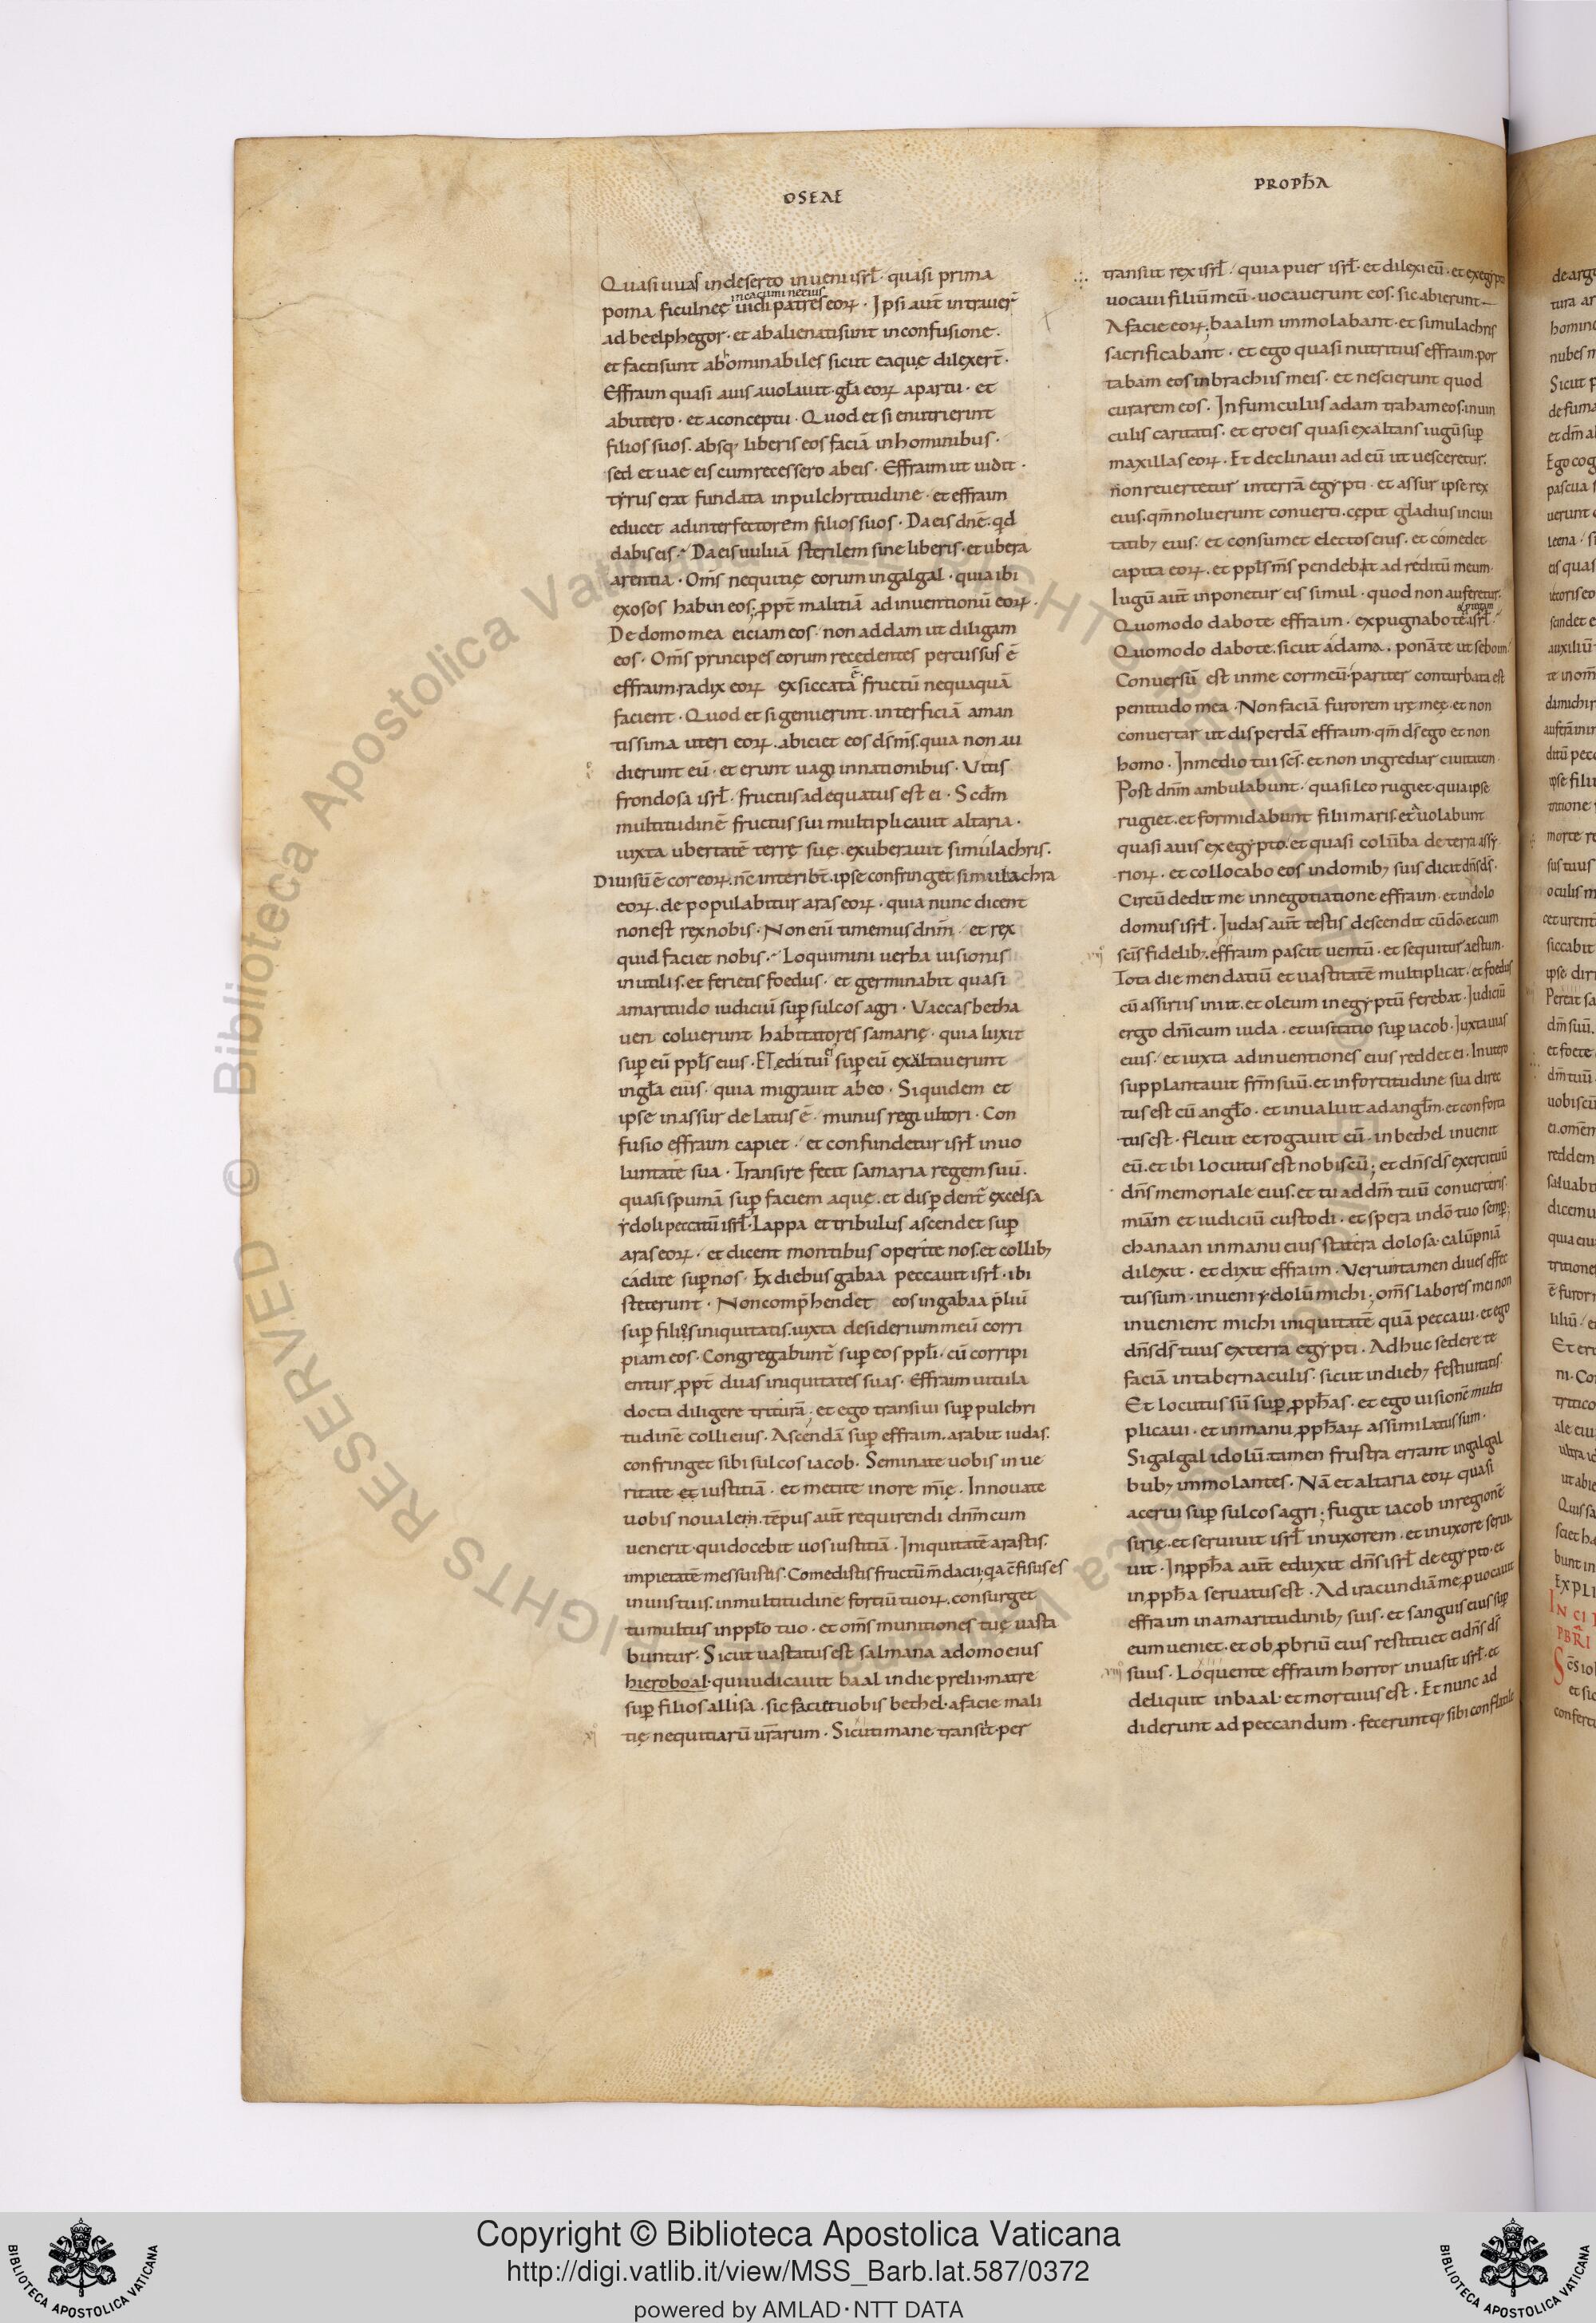 OSEAE
Quasi uuas in deserto inueni isrł· quasi prima
in cacumine eius
poma ficulneę uidi patres eoꝝ· Ipsi aut̄ intrauer̄
ad beelphegor· et abalienati sunt in confusione·
et facti sunt abominabiles sicut ea quę dilexer̄t·
Effraim quasi auis auolauit· gła eoꝝ a partu· et
ab utero· et a conceptu· Quod et si enutrierint
filios suos· absq; liberis eos faciā in hominibus·
sed et uae eis cum recessero ab eis· Effraim ut uidit·
tyrus erat fundata in pulchritudine· et effraim
educet ad interfectorem filios suos· Da eis dn̄e· qd̄
dabis eis· Da eis uuluā sterilem sine liberis· et ubera
arentia· Om̄s nequitię eorum in galgal· quia ibi
exosos habui eos; ꝓpt̄ malitiā adinuentionū eoꝝ·
De domo mea eiciam eos· non addam ut diligam
eos· Om̄s principes eorum recedentes percussus ē
effraim· radix eoꝝ exsiccata ē· fructū nequaquā
facient· Quod et si genuerint· interficiā aman
tissima uteri eoꝝ· abiciet eos ds̄ ms̄· quia non au
dierunt eū· et erunt uagi in nationibus· Vitis
frondosa isrł· fructus adequatus est ei· Scdm̄
multitudinē fructus sui multiplicauit altaria·
iuxta ubertatē terrę suę· exuberauit simulachris·
Diuisū ē cor eoꝝ· nc̄ interibt̄· ipse confringet simulachra
eoꝝ· depopulabitur aras eoꝝ· quia nunc dicent
non est rex nobis· Non eni̅ timemus dnm̄· et rex
quid faciet nobis· Loquimini uerba uisionis
inutilis· et ferietis foedus· et germinabit quasi
amaritudo iudiciū suꝑ sulcos agri· Vaccas betha
uen coluerunt habitatores samarię· quia luxit
suꝑ eū ppłs eius· Et editui eius suꝑ eū exaltauerunt
in gła eius· quia migrauit ab eo· Siquidem et
ipse in assur delatus ē· munus regi ultori· Con
fusio effraim capiet· et confundetur isrł in uo
luntate sua· Transire fecit samaria regem suū·
quasi spumā suꝑ faciem aquę· et disꝑdent̄ excelsa
ydoli peccatū isrł· Lappa et tribulus ascendet suꝑ
aras eoꝝ· et dicent montibus operite nos· et collib;
cadite suꝑ nos· Ex diebus gabaa peccauit isrł· ibi
steterunt· Non comp̄hendet eos in gabaa p̄liū
suꝑ filios iniquitatis· iuxta desiderium meū corri
piam eos· Congregabunt̄ suꝑ eos ppłi· cū corripi
entur ꝓpt̄ duas iniquitates suas· Effraim uitula
docta diligere trituram; et ego transiui suꝑ pulchri
tudinē colli eius· Ascendā suꝑ effraim· arabit iudas·
confringet sibi sulcos iacob· Seminate uobis in ue
ritate et iustitiā· et metite in ore mīę· Innouate
uobis noualem· tēpus aut̄ requirendi dnm̄ cum
uenerit· qui docebit uos iustitiā· Iniquitatē arastis·
impietatē messuistis· Comedistis fructū mdacii· qa cfisus es
in uiis tuis· in multitudine fortiū tuoꝝ· consurget
tumultus in ppło tuo· et om̄s munitiones tuę uasta
buntur· Sicut uastatus est salmana a domo eius
hieroboal· qui iudicauit baal in die prelii· matre
suꝑ filios allisa· sic faciet uobis bethel· a facie mali
tię nequitiarū ur̄arum· Sicuti mane transiit· per
PROPH̄A
transiit rex isrł· quia puer isrł· et dilexi eū· et ex egypto
uocaui filiū meū· uocauerunt eos· sic abierunt
A facie eoꝝ; baalim immolabant· et simulachris
sacrificabant· et ego quasi nutritius effraim· por
tabam eos in brachiis meis· et nescierunt quod
curarem eos· In funiculis adam traham eos· in uin
culis caritatis· et ero eis quasi exaltans iugū suꝑ
maxillas eoꝝ· Et declinaui ad eū ut uesceretur·
non reuertetur in terrā egypti· et assur ipse rex
eius· qm̄ noluerunt conuerti· cępit gladius in ciui
tatib; eius· et consumet electos eius· et comedet
capita eoꝝ· et ppłs ms̄ pendebit ad reditū meum·
Iugū aut̄ inponetur eis simul· quod non auferetur·
Quomodo dabo te effraim· expugnabo te isrł·
Quomodo dabo te· sicut adama· ponā te ut seboim
Conuersū est in me cor meū· pariter conturbata est
penitudo mea· Non faciā furorem irę meę· et non
conuertar ut disperdā effraim· qm̄ ds̄ ego et non
homo· In medio tui sc̄s· et non ingrediar ciuitatem·
Post dnm̄ ambulabunt· quasi leo rugiet· quia ipse
rugiet· et formidabunt filii maris· et uolabunt
quasi auis ex egypto· et quasi colūba de terra assy
rioꝝ· et collocabo eos in domib; suis dicit dn̄s ds̄·
Circūdedit me in negotiatione effraim· et in dolo
domus isrł· Iudas aut̄ testis descendit cū dō· et cum
sc̄is fidelib;· effraim pascit uentū· et sequitur aestum·
Tota die mendatiū et uastitatē multiplicat· et foedus
cū assiriis iniit· et oleum in egyptū ferebat· Iudiciū
ergo dn̄i cum iuda· et uisitatio suꝑ iacob· Iuxta uias
eius· et iuxta adinuentiones eius reddet ei· In utero
supplantauit frm̄ suū· et in fortitudine sua direc
tus est cū angło· et inualuit ad angłm· et conforta
tus est· fleuit et rogauit eū· in bethel inuenit
eū· et ibi locutus est nobiscū; et dn̄s ds̄ exercituū
dn̄s memoriale eius· et tu ad dm̄ tuū conuerteris·
miām et iudiciū custodi· et spera in dō tuo semꝑ;
chanaan in manu eius statera dolosa· calūpniā
dilexit· et dixit effraim· Veruntamen diues effec
tus sum· inueni ydolū michi; om̄s labores mei non
inuenient michi iniquitatē quā peccaui· et ego
dn̄s ds̄ tuus ex terra egypti· Adhuc sedere te
faciā in tabernaculis· sicut in dieb; festiuitatis·
Et locutus sū suꝑ ꝓph̄as· et ego uisionē multi
plicaui· et in manu ꝓph̄aꝝ assimilatus sum·
Si galgal idolū· tamen frustra errant in galgal
bub; immolantes· Nā et altaria eoꝝ quasi
acerui suꝑ sulcos agri; fugit iacob in regionē
sirię· et seruiuit isrł in uxorem· et in uxore serui
uit· In ꝓph̄a aut̄ eduxit dn̄s isrł de egypto· et
in ꝓph̄a seruatus est· Ad iracundiā me ꝓuocauit
effraim in amaritudinib; suis· et sanguis eius suꝑ
eum ueniet· et obꝓbriū eius restituet ei dn̄s ds̄
suus· Loquente effraim horror inuasit isrł· et
deliquit in baal· et mortuus est· Et nunc ad
diderunt ad peccandum· feceruntq; sibi conflatile
Copyright © Biblioteca Apostolica Vaticana
http://digi.vatlib.it/view/MSS_Barb.lat.587/0372
powered by AMLAD·NTT DATA